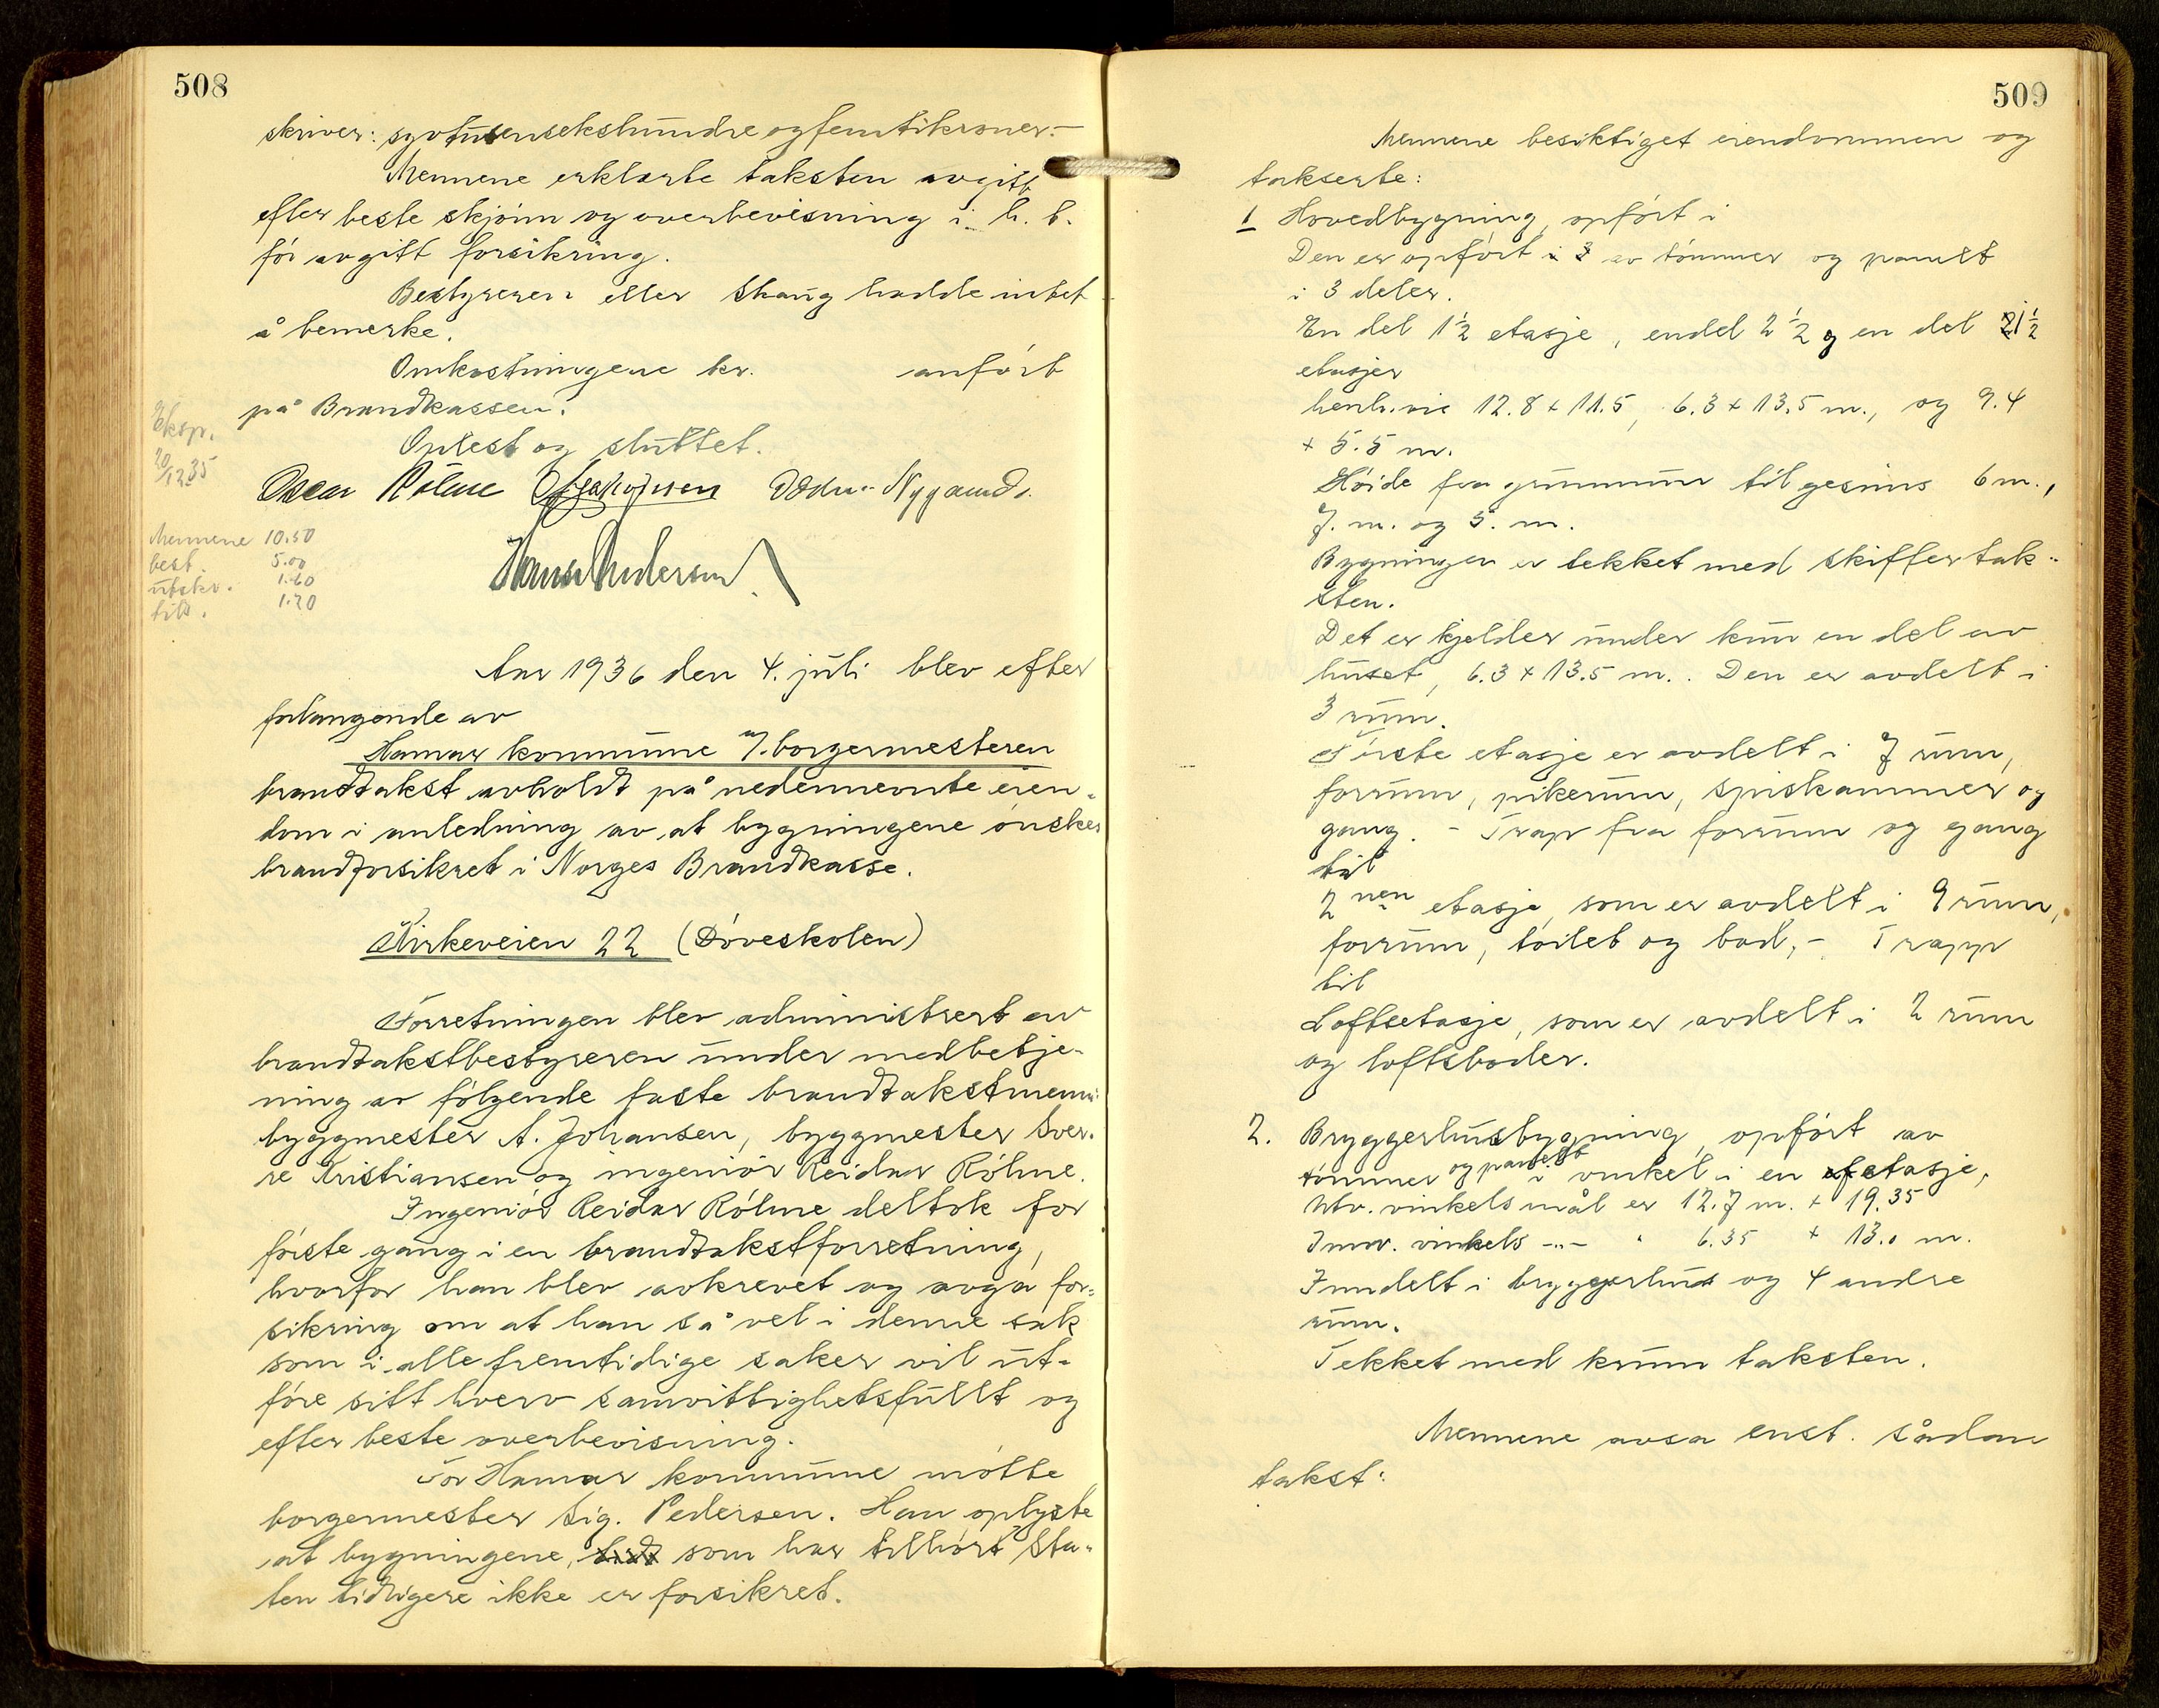 508
skriver: syvtusensekshundre og femtikroner.-
Mennene erklærte taksten avgitt
efter beste skjønn og overbevisning i h. t.
før avgitt forsikring.
Bestyreren eller Skaug hadde intet
å bemerke.
Omkostningene kr. anført
på Brandkassen.
Oplest og sluttet.
Eksp.
20/12 35
Oscar Rølme Nygaard
Mennene 10.50
best. 5.00
utskr. 1.60
till. 1.20
Hans Andersen
Aar 1936 den 4. juli blev efter
forlangende av
Hamar kommune v/ borgermesteren
brandtakst avholdt på nedennevnte eien-
dom i anledning av at bygningene ønskes
brandforsikret i Norges Brandkasse.
Kirkeveien 22 (Døveskolen)
Forretningen blev administrert av
brandtakstbestyreren under medbetje-
ning av følgende faste brandtakstmenn:
byggmester A. Johansen, byggmester Sver-
re Kristiansen og ingeniør Reidar Rølme.
Ingeniør Reidar Rølme deltok for
første gang i en brandtakstforretning,
hvorfor han blev avkrevet og avga for-
sikring om at han så vel i denne sak
som i alle fremtidige saker vil ut-
føre sitt hverv samvittighetsfullt og
efter beste overbevisning.
For Hamar kommune møtte
borgermester Sig. Pedersen. Han oplyste
at bygningene, som har tilhørt Sta-
ten tidligere ikke er forsikret.
509
Mennene besiktiget eiendommen og
takserte:
1 Hovedbygning, opført i
Den er opført i 3 av tømmer og panelt
i 3 deler.
En del 1½ etasje, endel 2½ og en del 1½
etasjer
henh.vis 12.8 x 11.5, 6.3 x 13.5 m., og 9.4
x 5.5 m.
Høide fra grunnmur til gesims 6 m.,
7. m. og 5. m.
Bygningen er tekket med skiffertak-
sten.
Det er kjelder under kun en del av
huset, 6.3 x 13.5 m.. Den er avdelt i
3 rum.
Første etasje er avdelt i 7 rum,
forrum, pikerum, spiskammer og
gang. - Trapp fra forrum og gang
til
2nen etasje, som er avdelt i 9 rum,
forrum, toilet og bad, - Trapp
til
Loftsetasje, som er avdelt i 2 rum
og loftsboder.
2. Bryggerhusbygning, opført av
tømmer og panelt i vinkel i en etasje,
Utv. vinkelsmål er 12.7 m. x 19.35
Innv. vinkels -"- " 6.35 x 13.0 m.
Inndelt i bryggerhus og 4 andre
rum.
Tekket med krum taksten.
Mennene avsa enst. sådan
takst: